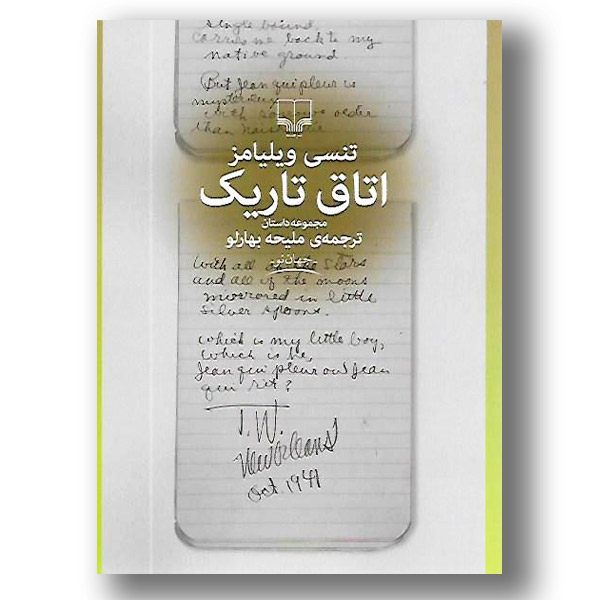 single bound.
carries me back to my
native ground.
But Jean qui pleur is
mysterious
with sorrows older
than
تنسی ویلیامز
اتاق تاریک
مجموعه داستان
ترجمه‌ی ملیحه بهارلو
جهان نو
With all of the stars
and all of the moons
mirrored in little
silver spoons.
Which is my little boy,
which is he,
Jean qui pleur ou Jean
qui rit?
T. W.
New Orleans
Oct. 1941